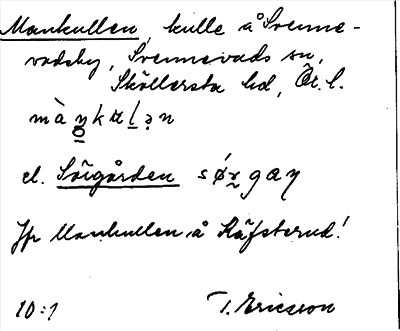 Mankullen, kulle å Svenne-
vadsby, Svennevads sn,
Sköllersta hd, Ör. l.
el. Sörgården
Jfr Mankullen å Räfsterud!
10:1 T. Ericsson